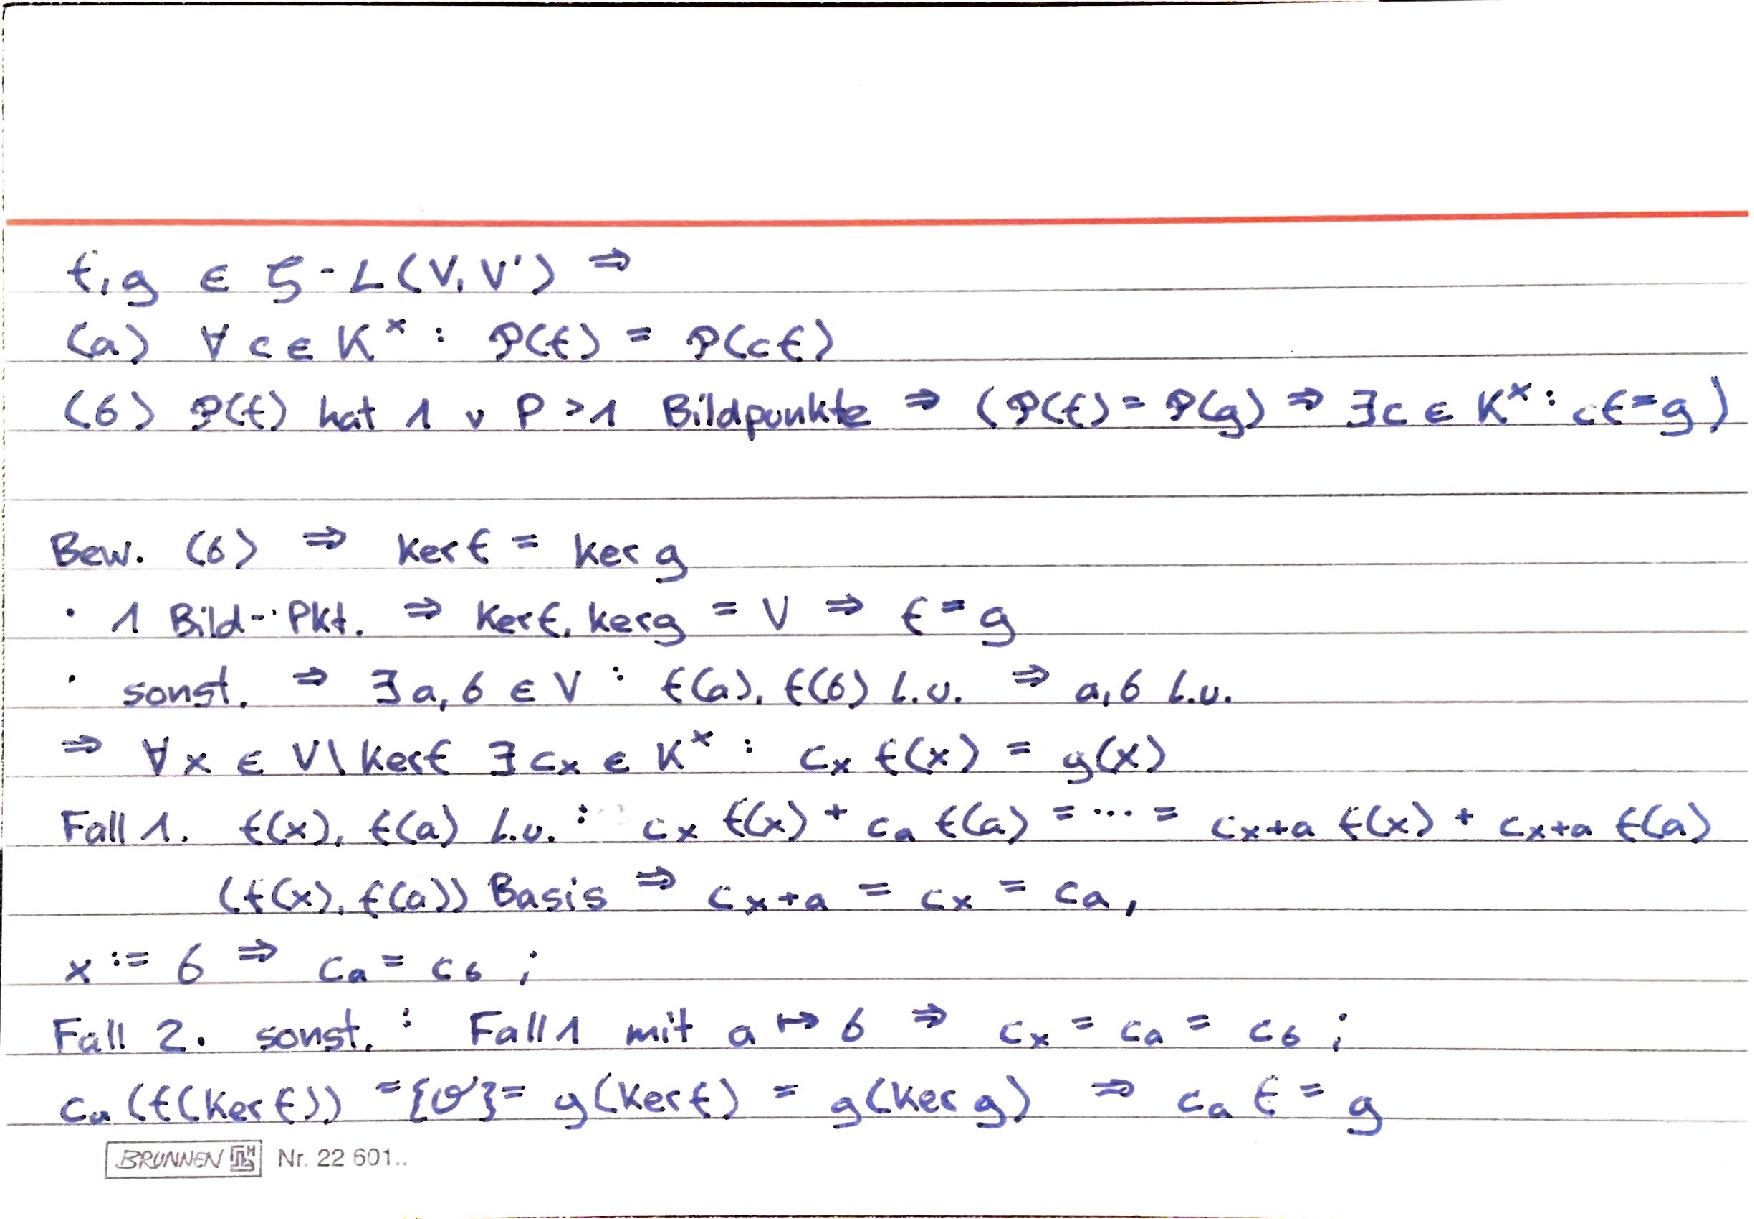 f,g ∈ ζ-L(V,V') ⇒
(a) ∀ c ∈ K^x : P(f) = P(cf)
(b) P(f) hat 1 v P > 1 Bildpunkte ⇒ (P(f) = P(g) ⇒ ∃c ∈ K^x : cf = g)
Bew. (b) ⇒ ker f = ker g
· 1 Bild-Pkt. ⇒ ker f, ker g = V ⇒ f = g
· sonst. ⇒ ∃ a, b ∈ V : f(a), f(b) l.u. ⇒ a, b l.u.
⇒ ∀ x ∈ V \ ker f ∃ c_x ∈ K^x : c_x f(x) = g(x)
Fall 1. f(x), f(a) l.u. : c_x f(x) + c_a f(a) = ... = c_{x+a} f(x) + c_{x+a} f(a)
(f(x), f(a)) Basis ⇒ c_{x+a} = c_x = c_a,
x := b ⇒ c_a = c_b ;
Fall 2. sonst. : Fall 1 mit a ↦ b ⇒ c_x = c_a = c_b ;
c_a (f(ker f)) = {O'} = g(ker f) = g(ker g) ⇒ c_a f = g
BRUNNEN Nr. 22 601..